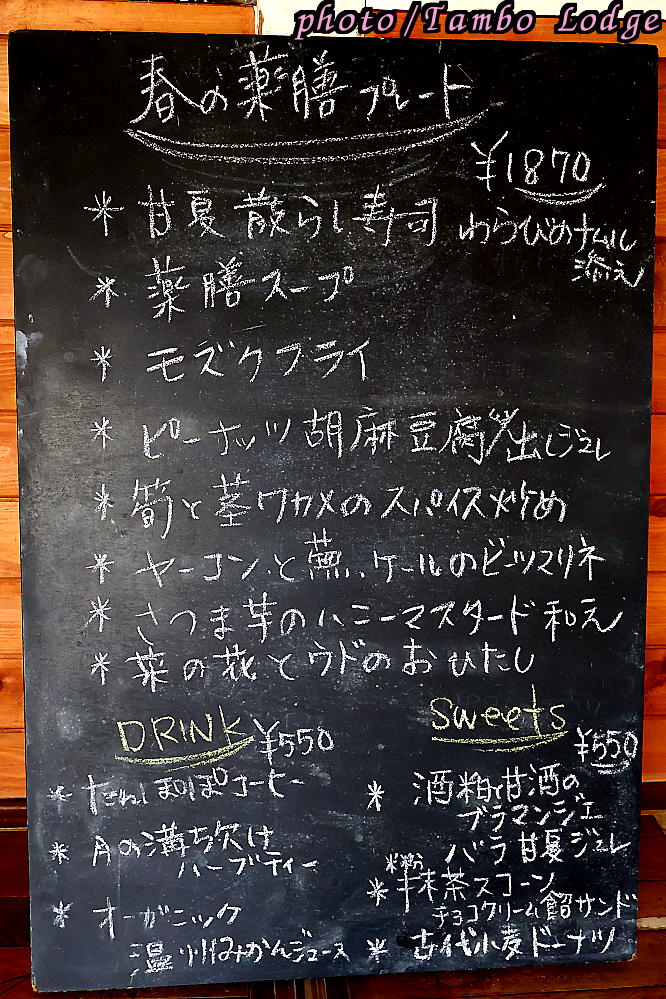 photo/Tambo Lodge
春の薬膳プレート
¥1870
* 甘夏散らし寿司 わらびのナムル
添え
* 薬膳スープ
* モズクフライ
* ピーナッツ胡麻豆腐 出しジュレ
* 筍と茎ワカメのスパイス炒め
* ヤーコンと蕪、ケールのビーツマリネ
* さつま芋のハニーマスタード和え
* 菜の花とウドのおひたし
DRINK ¥550
* たんぽぽコーヒー
* 月の満ち欠け
ハーブティー
* オーガニック
温州みかんジュース
Sweets
¥550
* 酒粕と甘酒の
ブラマンジェ
バラ甘夏ジュレ
* 米粉抹茶スコーン
チョコクリーム餡サンド
* 古代小麦ドーナツ